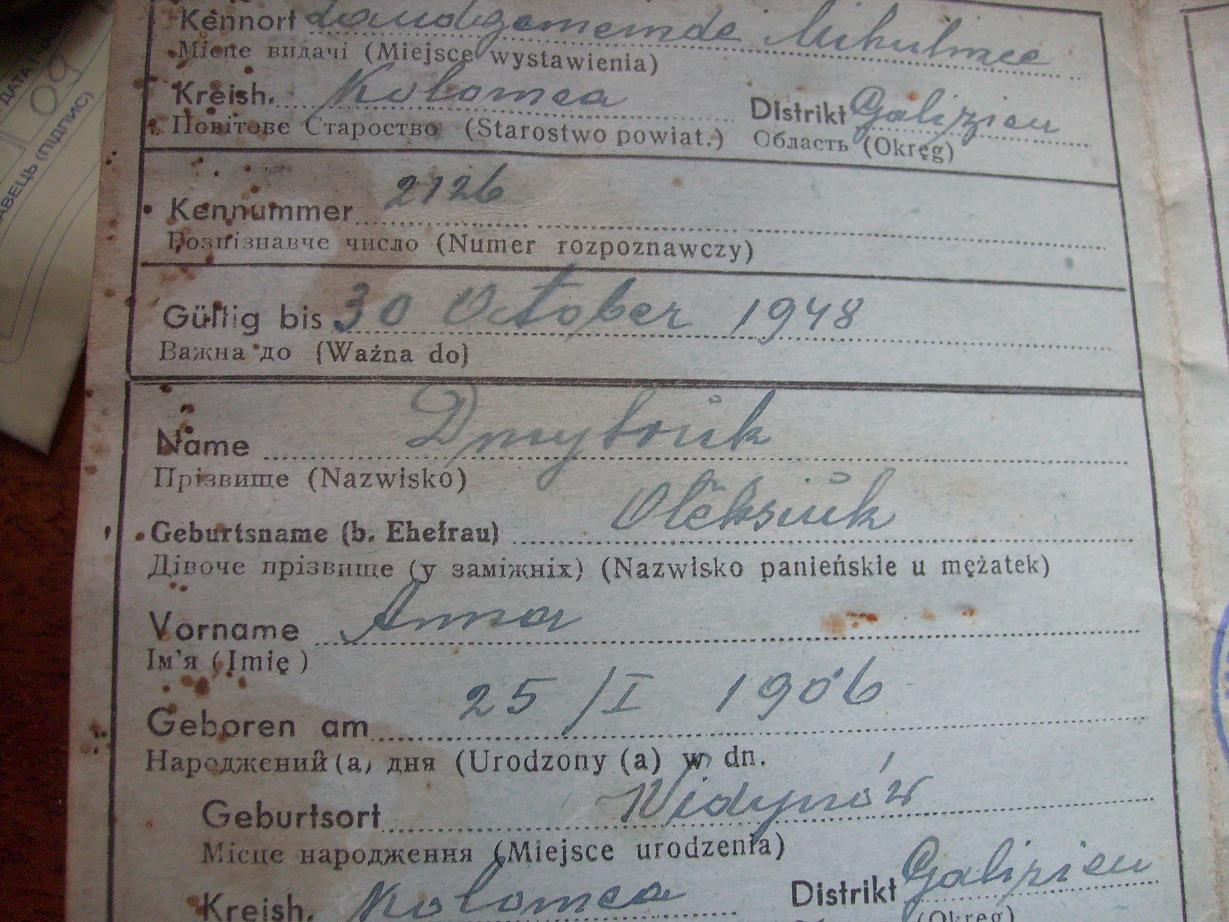 ДАТА І
09
АВЕЦЬ (ПІДПИС)
Kennort Landgemeinde Mikulince
Місце видачі (Miejsce wystawienia)
Kreish. Kolomea Distrikt Galizien
Повітове Староство (Starostwo powiat.) Область (Okręg)
Kennummer 2126
Розпізнавче число (Numer rozpoznawczy)
Gültig bis 30 October 1948
Важна до (Ważna do)
Name Dmytruk
Прізвище (Nazwisko)
Geburtsname (b. Ehefrau) Oleksiuk
Дівоче прізвище (у заміжніх) (Nazwisko panieńskie u mężatek)
Vorname Anna
Ім'я (Imię)
Geboren am 25/I 1906
Народжений (а) дня (Urodzony (a) w dn.
Geburtsort Widynów
Місце народження (Miejsce urodzenia)
Kreish. Kolomea Distrikt Galizien
(Okręg)